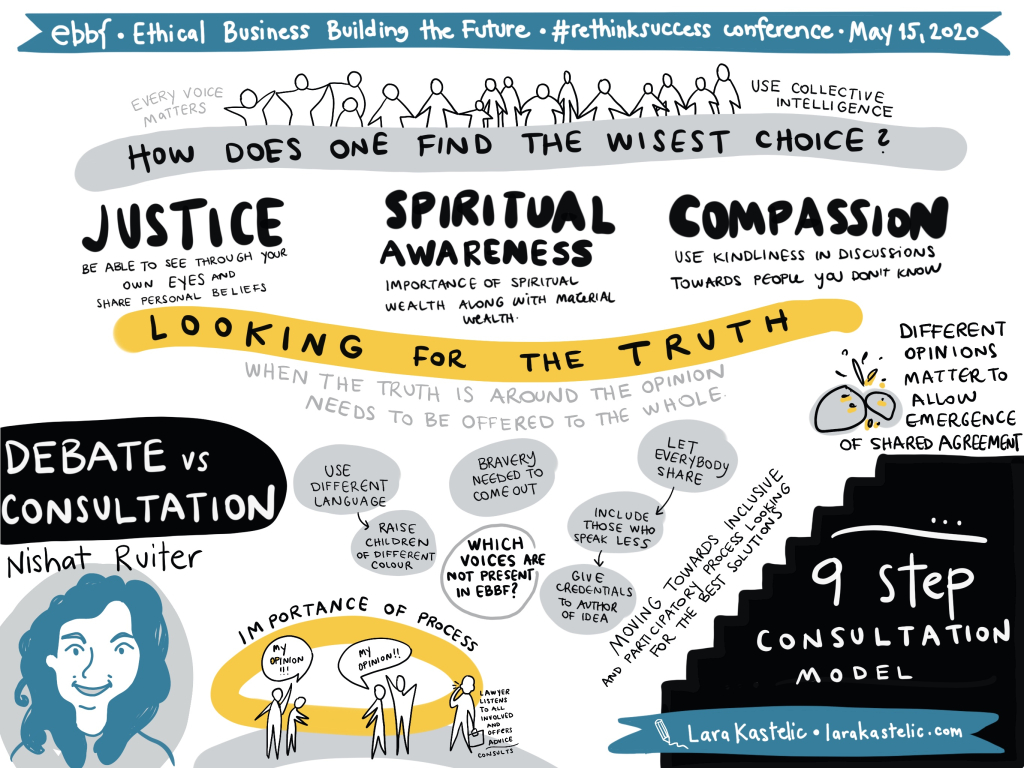 ebbf • Ethical Business Building the Future • #rethinksuccess conference • May 15, 2020
EVERY VOICE
MATTERS
USE COLLECTIVE
INTELLIGENCE
HOW DOES ONE FIND THE WISEST CHOICE?
JUSTICE
BE ABLE TO SEE THROUGH YOUR
OWN EYES AND
SHARE PERSONAL BELIEFS
SPIRITUAL
AWARENESS
IMPORTANCE OF SPIRITUAL
WEALTH ALONG WITH MATERIAL
WEALTH.
COMPASSION
USE KINDLINESS IN DISCUSSIONS
TOWARDS PEOPLE YOU DON'T KNOW
LOOKING FOR THE TRUTH
WHEN THE TRUTH IS AROUND THE OPINION
NEEDS TO BE OFFERED TO THE WHOLE.
DIFFERENT
OPINIONS
MATTER TO
ALLOW
EMERGENCE
OF SHARED AGREEMENT
DEBATE VS
CONSULTATION
Nishat Ruiter
USE
DIFFERENT
LANGUAGE
RAISE
CHILDREN
OF DIFFERENT
COLOUR
BRAVERY
NEEDED TO
COME OUT
WHICH
VOICES ARE
NOT PRESENT
IN EBBF?
LET
EVERYBODY
SHARE
INCLUDE
THOSE WHO
SPEAK LESS
GIVE
CREDENTIALS
TO AUTHOR
OF IDEA
MOVING TOWARDS INCLUSIVE
AND PARTICIPATORY PROCESS LOOKING
FOR THE BEST SOLUTIONS
IMPORTANCE OF PROCESS
MY
OPINION
!!!
MY
OPINION!!
LAWYER
LISTENS
TO ALL
INVOLVED
AND
OFFERS
ADVICE
CONSULTS
...
9 step
CONSULTATION
MODEL
Lara Kastelic • larakastelic.com